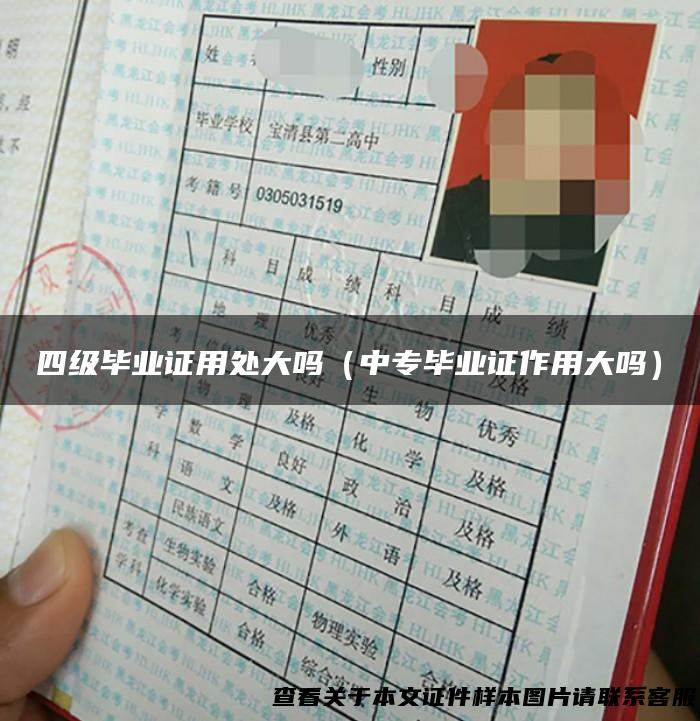 姓
性别
毕业学校 宝清县第二高中
考籍号 0305031519
科目 成绩 科目 成绩
地理 优秀
四级毕业证用处大吗（中专毕业证作用大吗）
物理 及格 生物 优秀
数学 良好 化学 及格
语文 及格 政治 及格
民族语文 外语 及格
考查学科 生物实验 合格 物理实验 合格
化学实验 合格 综合实
查看关于本文证件样本图片请联系客服